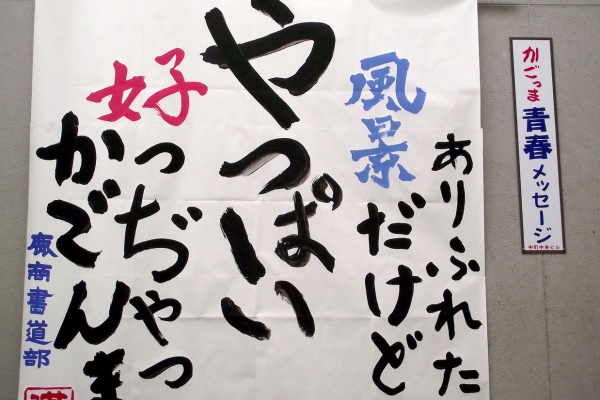 ありふれた
風景だけど
やっぱい
好っぢゃっ
かごんま
鹿商書道部
かごっま青春メッセージ
中町中央ビル